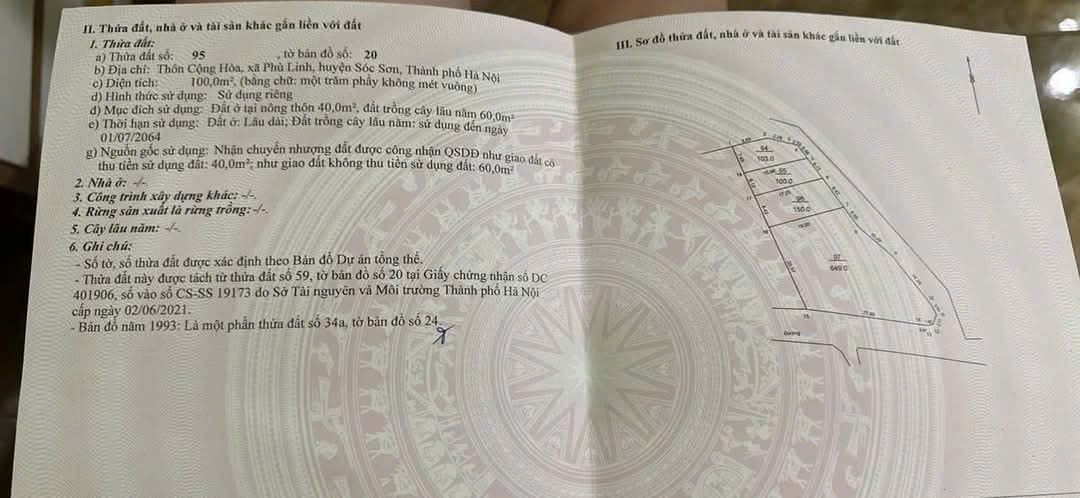 II. Thửa đất, nhà ở và tài sản khác gắn liền với đất
1. Thửa đất:
a) Thửa đất số: 95 , tờ bản đồ số: 20
b) Địa chỉ: Thôn Cộng Hòa, xã Phù Linh, huyện Sóc Sơn, Thành phố Hà Nội
c) Diện tích: 100,0m², (bằng chữ: một trăm phẩy không mét vuông)
d) Hình thức sử dụng: Sử dụng riêng
đ) Mục đích sử dụng: Đất ở tại nông thôn 40,0m², đất trồng cây lâu năm 60,0m²
e) Thời hạn sử dụng: Đất ở: Lâu dài; Đất trồng cây lâu năm: sử dụng đến ngày
01/07/2064
g) Nguồn gốc sử dụng: Nhận chuyển nhượng đất được công nhận QSDĐ như giao đất có
thu tiền sử dụng đất: 40,0m²; như giao đất không thu tiền sử dụng đất: 60,0m²
2. Nhà ở: -/-.
3. Công trình xây dựng khác: -/-.
4. Rừng sản xuất là rừng trồng: -/-.
5. Cây lâu năm: -/-.
6. Ghi chú:
- Số tờ, số thửa đất được xác định theo Bản đồ Dự án tổng thể.
- Thửa đất này được tách từ thửa đất số 59, tờ bản đồ số 20 tại Giấy chứng nhận số DC
401906, số vào sổ CS-SS 19173 do Sở Tài nguyên và Môi trường Thành phố Hà Nội
cấp ngày 02/06/2021.
- Bản đồ năm 1993: Là một phần thửa đất số 34a, tờ bản đồ số 24.
III. Sơ đồ thửa đất, nhà ở và tài sản khác gắn liền với đất
94
103.0
95
100.0
96
150.0
97
649.0
Đường